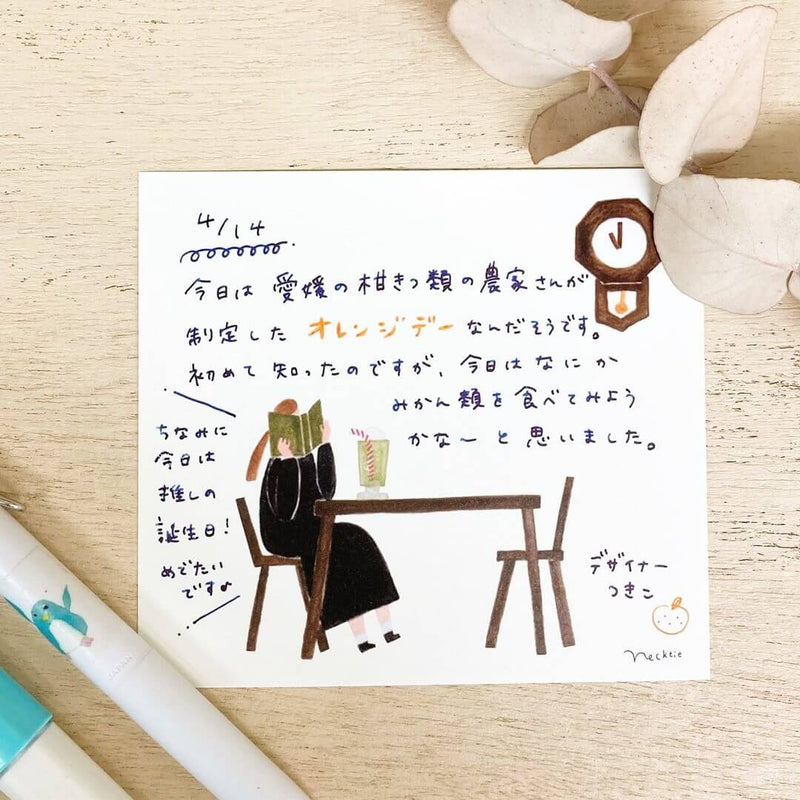 4/14
今日は 愛媛の柑きつ類の農家さんが
制定した オレンジデー なんだそうです。
初めて 知ったのですが、今日は なにか
みかん類を食べてみよう
かな〜 と 思いました。
ちなみに
今日は
推しの
誕生日!
めでたい
です♪
デザイナー
つきこ
necktie
JAPAN